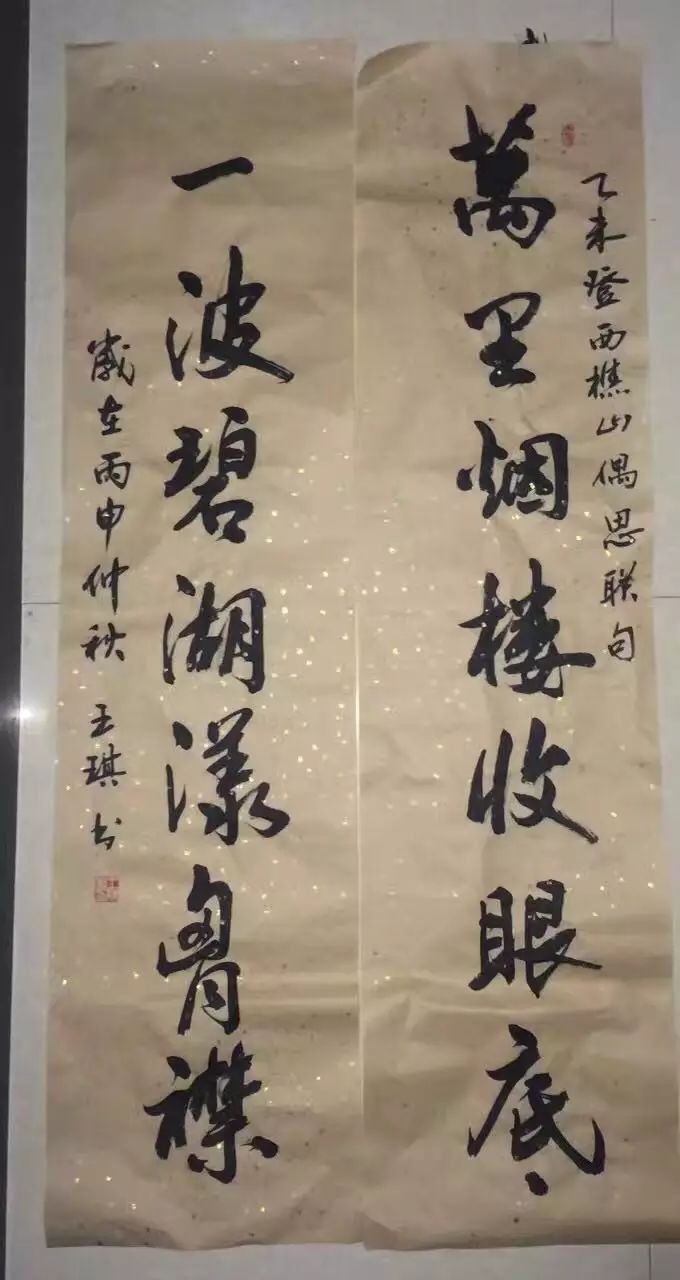 乙未登西樵山偶思联句
萬里烟楼收眼底
一波碧湖漾胷襟
歲在丙申仲秋 王琪书